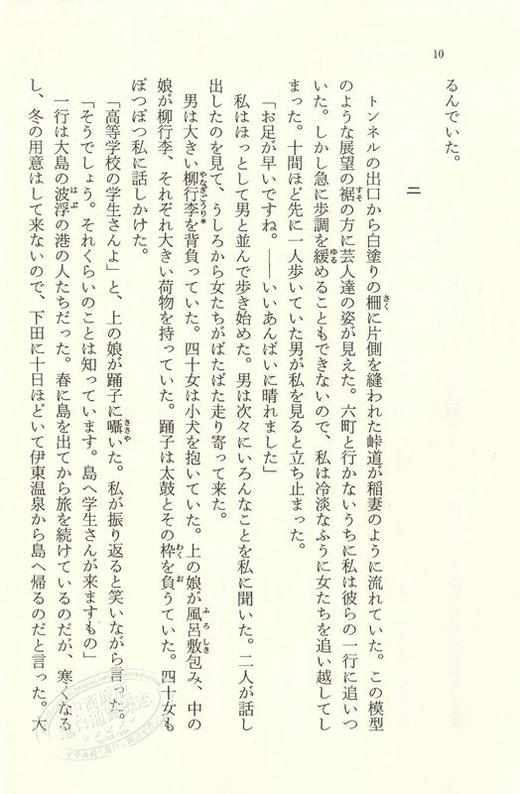 10
るんでいた。
二
トンネルの出口から白塗りの柵に片側を縫われた峠道が稲妻のように流れていた。この模型
のような展望の裾の方に芸人達の姿が見えた。六町と行かないうちに私は彼らの一行に追いつ
いた。しかし急に歩調を緩めることもできないので、私は冷淡なふうに女たちを追い越してし
まった。十間ほど先に一人歩いていた男が私を見ると立ち止まった。
「お足が早いですね。――いいあんばいに晴れました」
私はほっとして男と並んで歩き始めた。男は次々にいろんなことを私に聞いた。二人が話し
出したのを見て、うしろから女たちがばたばた走り寄って来た。
男は大きい柳行李*を背負っていた。四十女は小犬を抱いていた。上の娘が風呂敷包み、中の
娘が柳行李、それぞれ大きい荷物を持っていた。踊子は太鼓とその枠を負うていた。四十女も
ぽつぽつ私に話しかけた。
「高等学校の学生さんよ」と、上の娘が踊子に囁いた。私が振り返ると笑いながら言った。
「そうでしょう。それくらいのことは知っています。島へ学生さんが来ますもの」
一行は大島の波浮の港の人たちだった。春に島を出てから旅を続けているのだが、寒くなる
し、冬の用意はして来ないので、下田に十日ほどいて伊東温泉から島へ帰るのだと言った。大